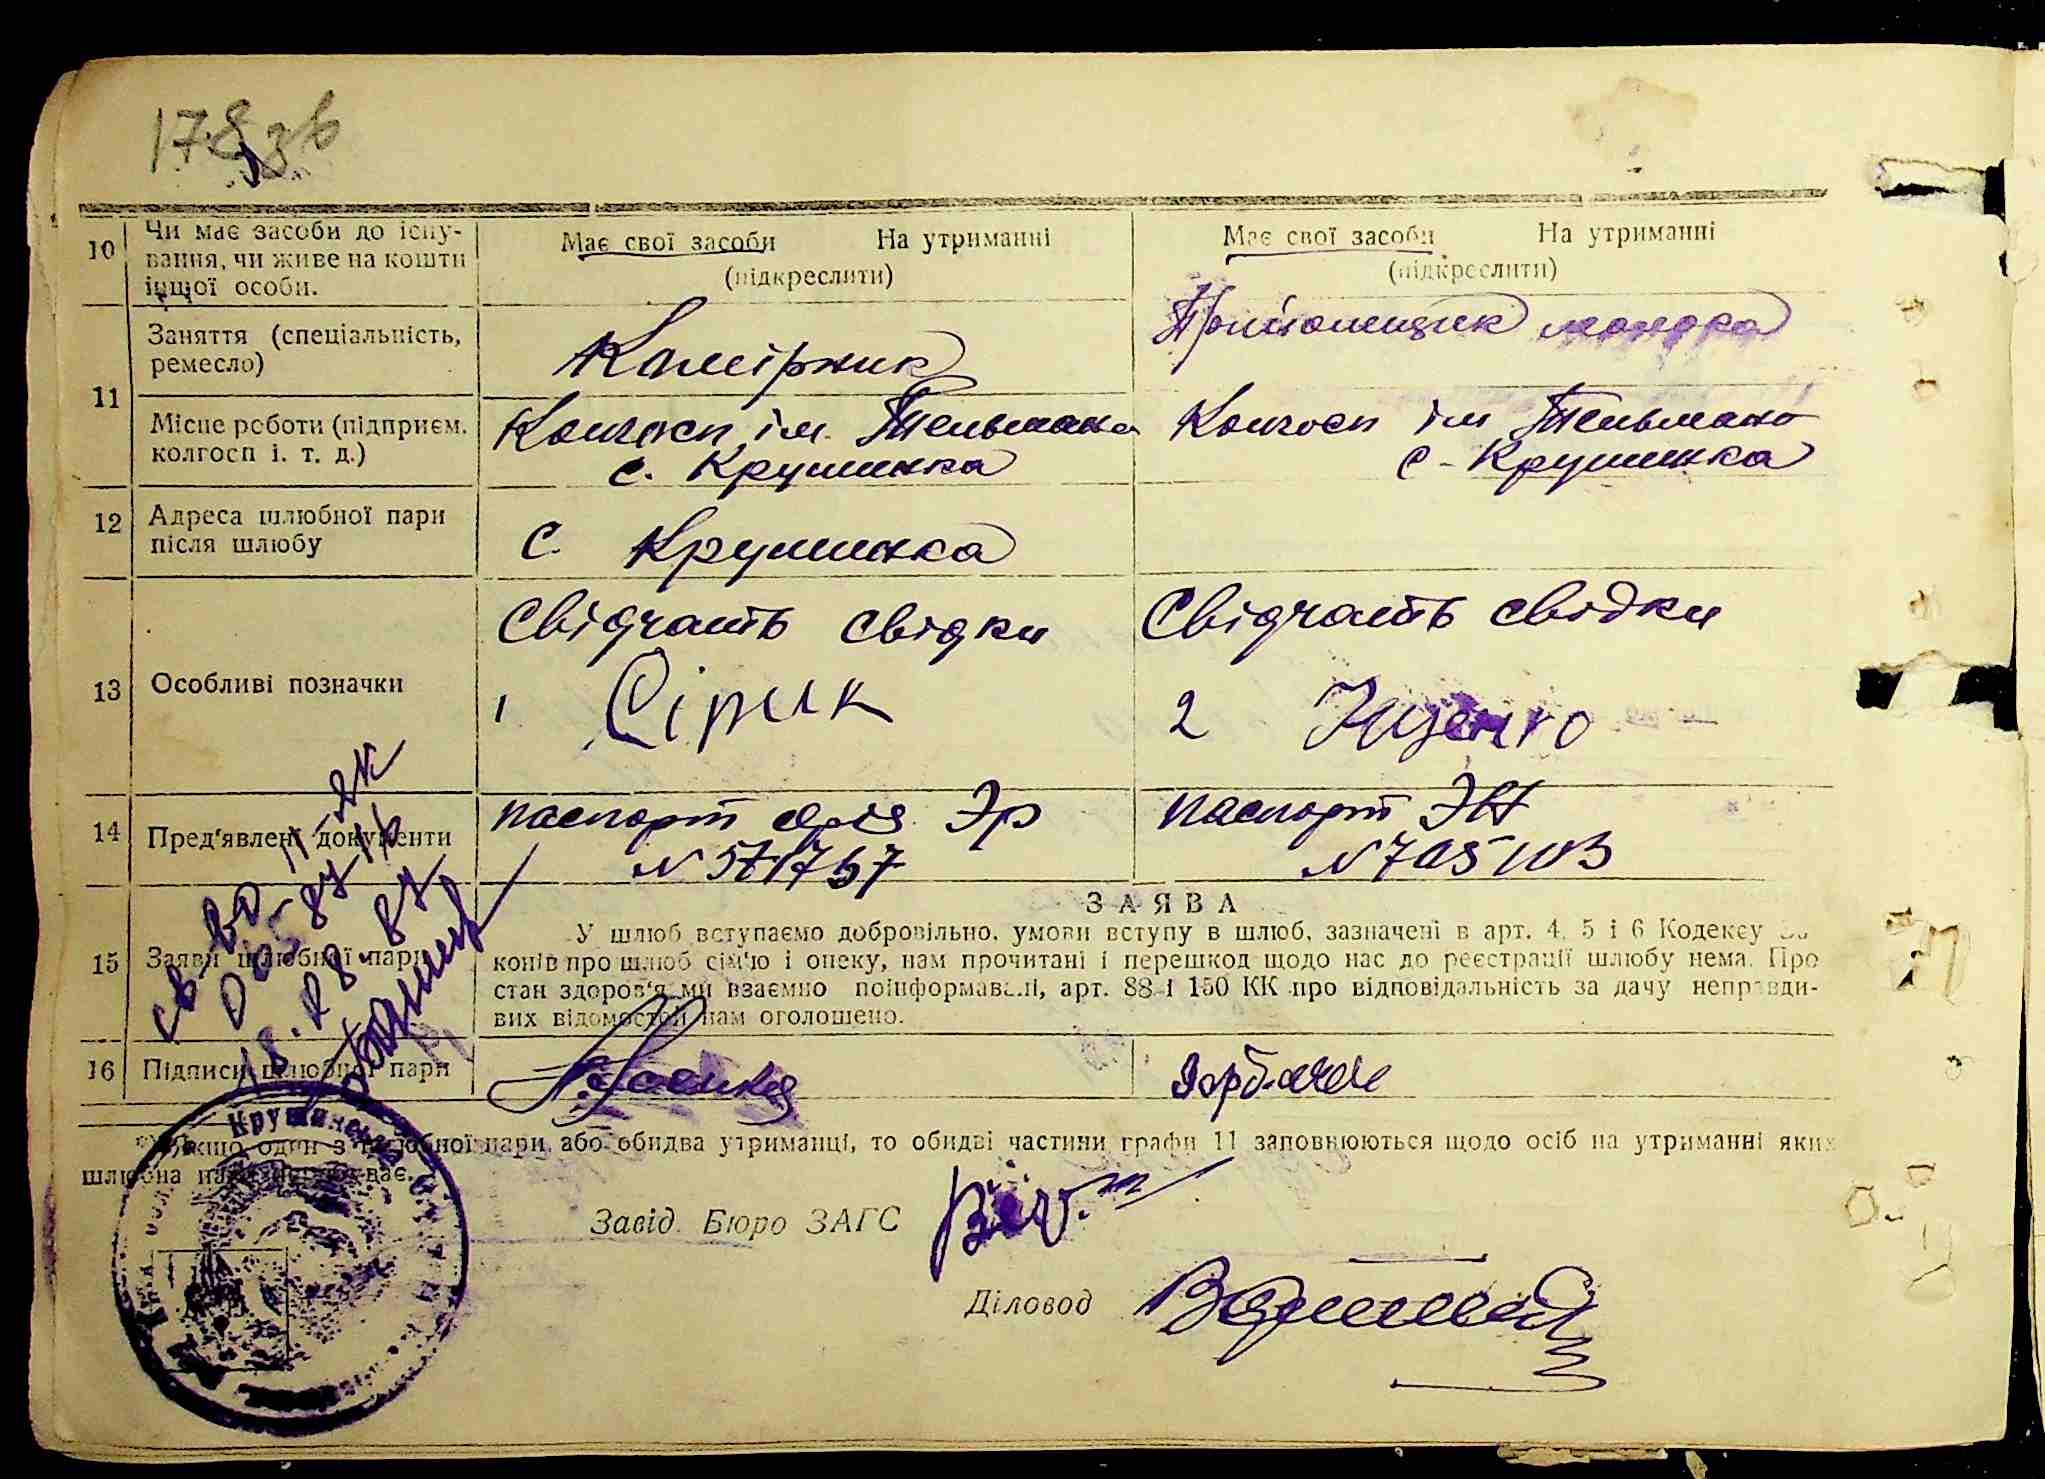 178 зв
10 Чи має засоби до існу-
вання, чи живе на кошти
іншої особи.
Має свої засоби На утриманні
(підкреслити)
Має свої засоби На утриманні
(підкреслити)
11 Заняття (спеціальність,
ремесло)
Комірник
Прийомщик молока
Місце роботи (підприєм.
колгосп і. т. д.)
Колгосп ім. Тельмана
с. Крушинка
Колгосп ім Тельмана
с - Крушинка
12 Адреса шлюбної пари
після шлюбу
с. Крушинка
13 Особливі позначки
Свідчать свідки
1 Сірик
Свідчать свідки
2 Яценко
14 Пред'явлені документи
паспорт серія Эр
N 571757
паспорт
N 705103
15 Заяви шлюбної пари
ЗАЯВА
У шлюб вступаємо добровільно, умови вступу в шлюб, зазначені в арт. 4, 5 і 6 Кодексу За-
конів про шлюб сім'ю і опеку, нам прочитані і перешкод щодо нас до реєстрації шлюбу нема. Про
стан здоров'я ми взаємно поінформавалі, арт. 88 і 150 КК про відповідальність за дачу неправди-
вих відомостей нам оголошено.
16 Підписи шлюбної пари
Горбач
*) Якщо один з шлюбної пари або обидва утриманці, то обидві частини графи 11 заповнюються щодо осіб на утриманні яких
шлюбна пара перебуває.
Завід. Бюро ЗАГС
Діловод